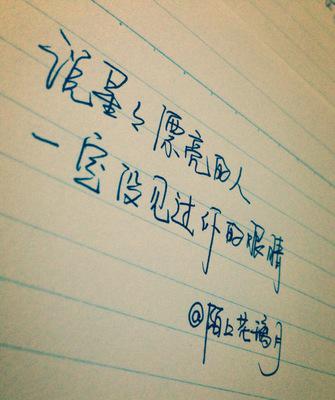 说星星漂亮的人
一定没见过你的眼睛
@陌上花璃月